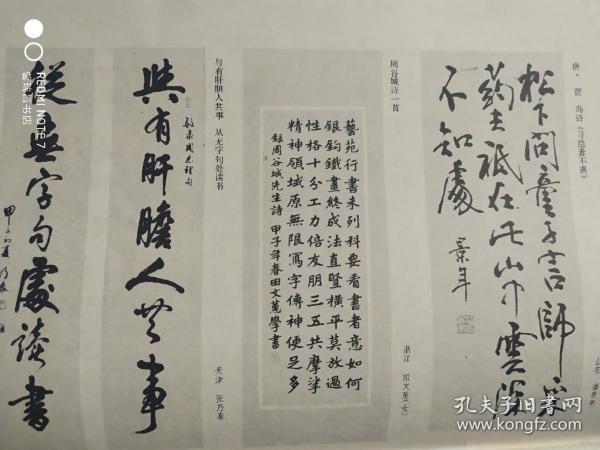 唐·贾岛诗《寻隐者不遇》
松下问童子言師采
药去祗在此山中雲深
不知處
景年
周谷城诗一首
藝苑行書未列科要看書者意如何
銀鉤鐵畫終成法直豎橫平莫放過
性格十分工力倍友朋三五共摩挲
精神領域原無限寫字傳神便足多
錄周谷城先生詩 甲子年春田文蕙學書
浙江 田文蕙(女)
与有肝胆人共事 从无字句处读书
敬录周总理句
與有肝膽人共事
天津 张乃泰
從無字句處读書
REDMI NOTE 7
孔夫子旧书网
www.kongfz.com